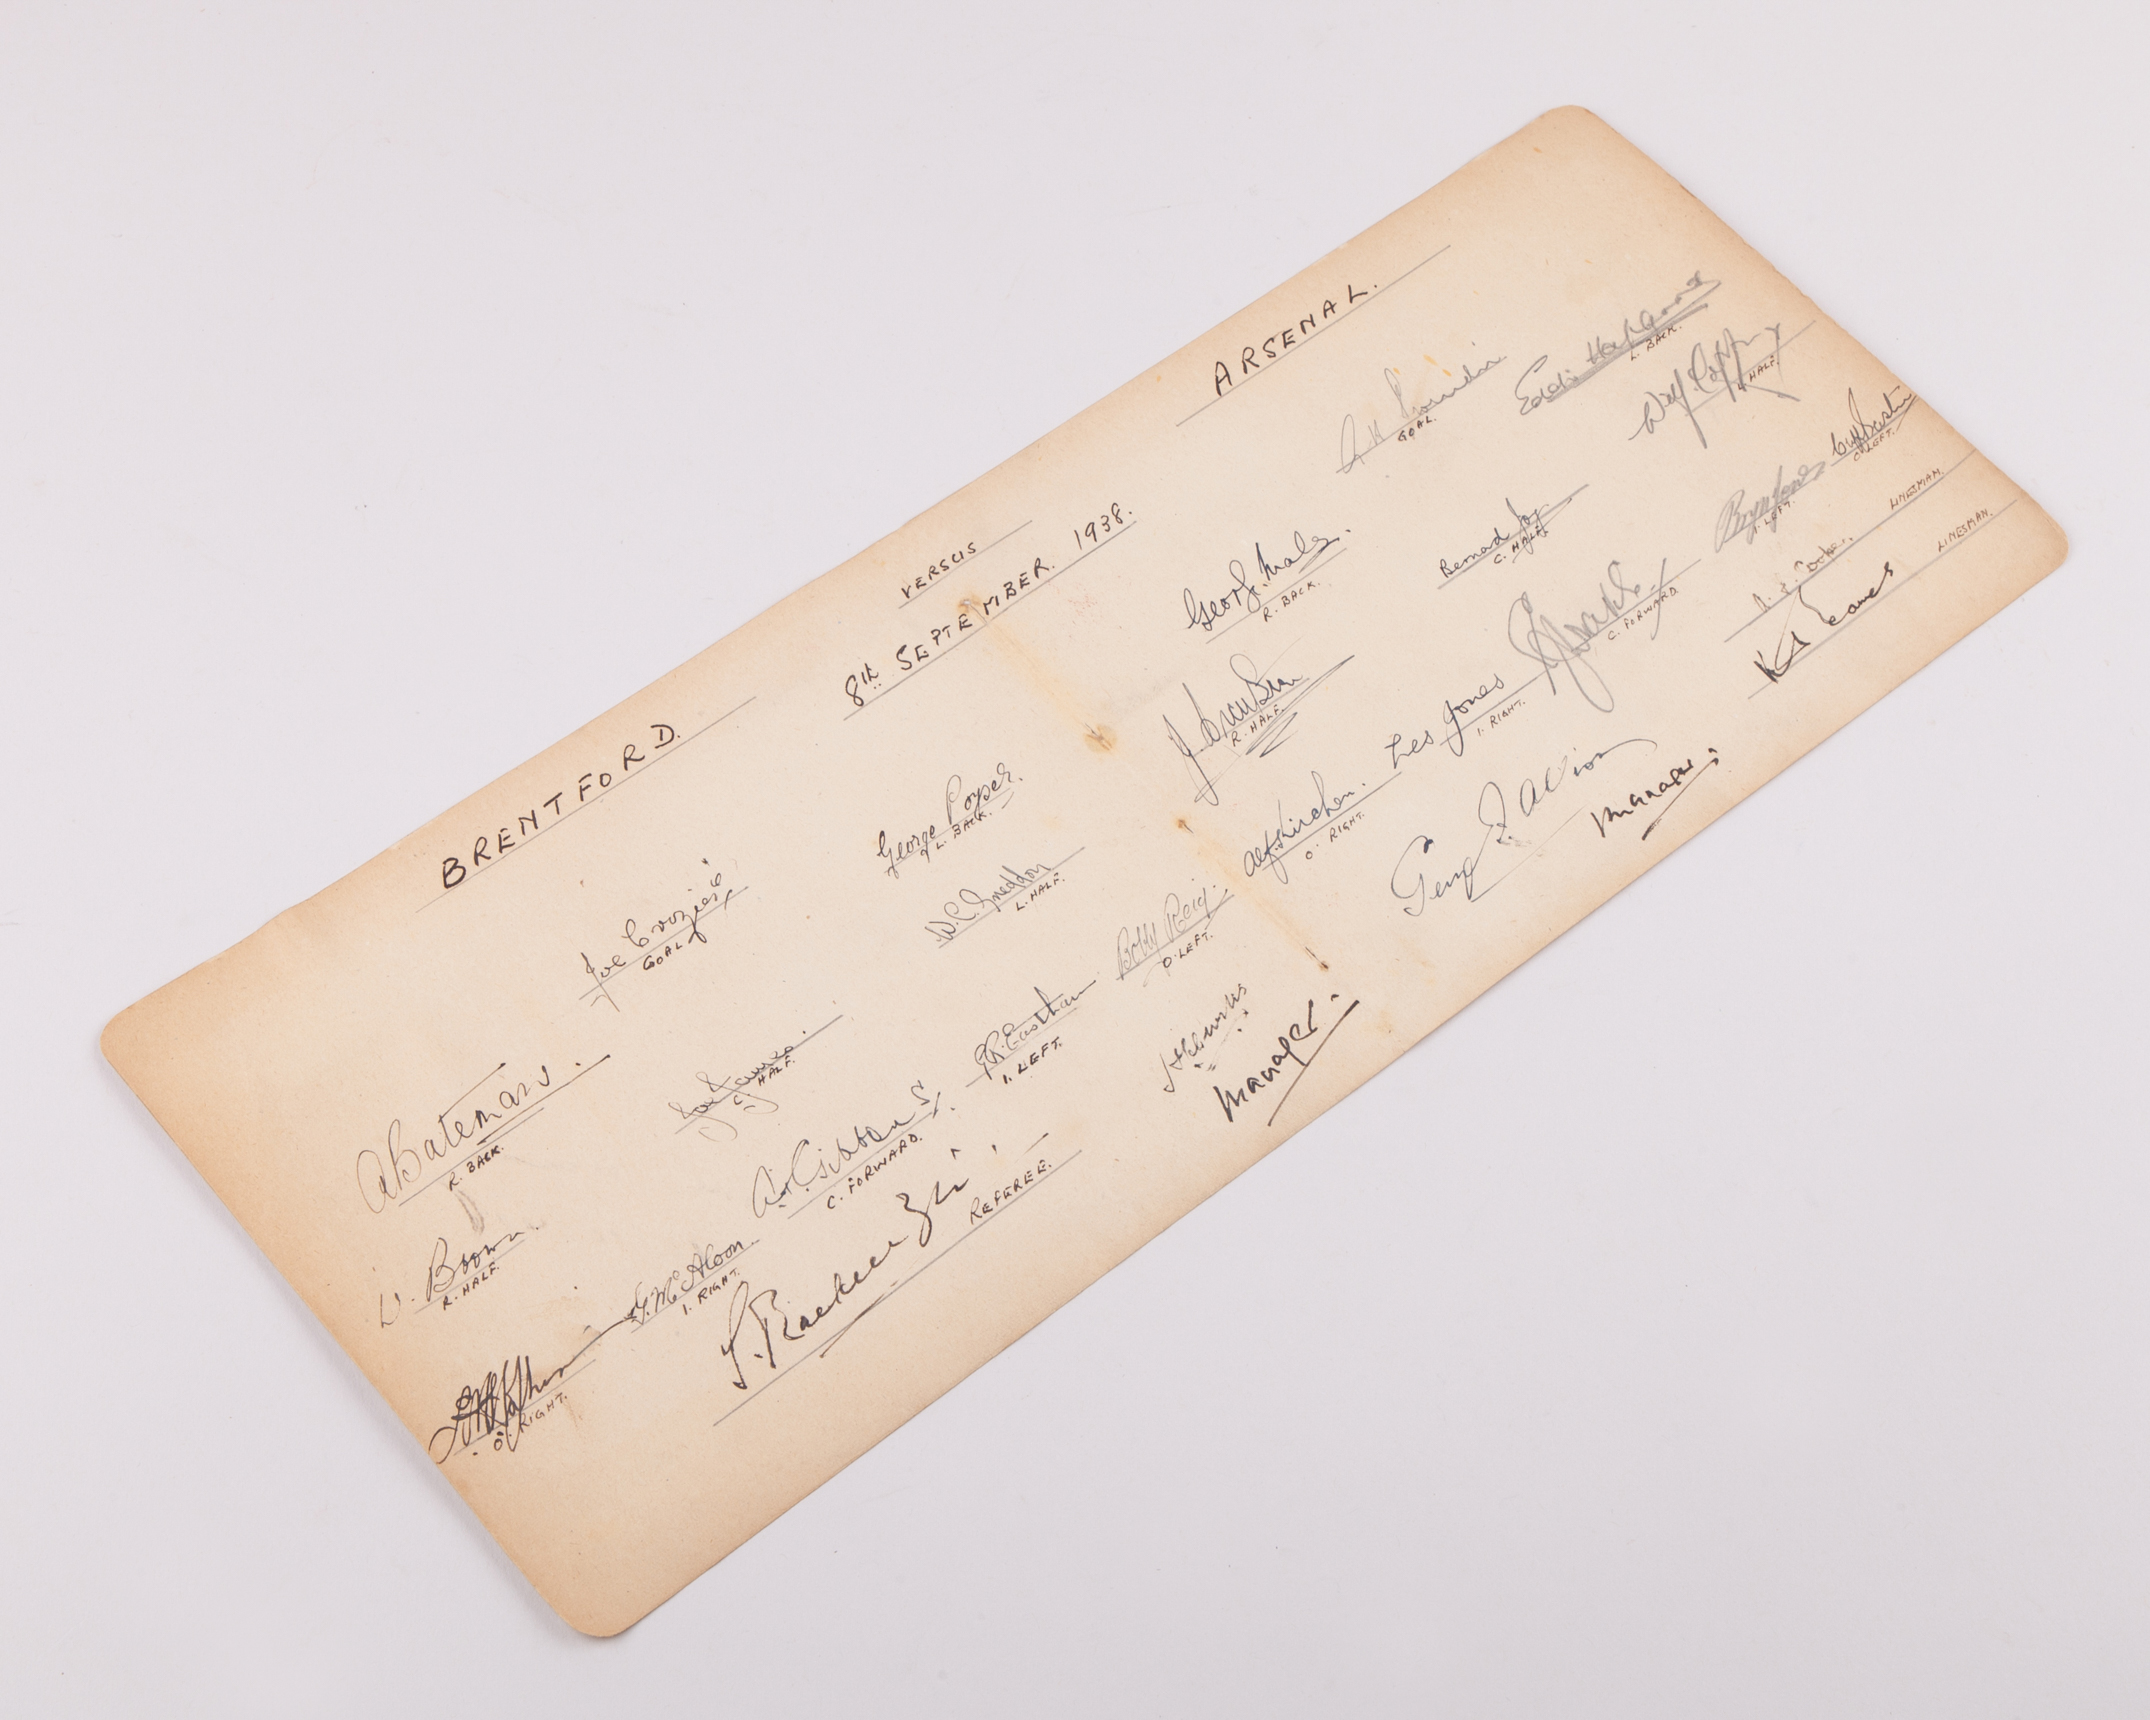 BRENTFORD.
VERSUS
ARSENAL.
8th SEPTEMBER. 1938.
Joe Crozier
GOAL
A Bateman.
R. BACK.
George Poyser.
L. BACK.
W. Brown.
R. HALF.
Joe James.
C. HALF.
W.C. Sneddon
L. HALF.
O. RIGHT.
G. McAloon.
I. RIGHT.
C. FORWARD.
I. LEFT.
Bobby Reid.
O. LEFT.
REFEREE.
Manager.
GOAL.
George Male.
R. BACK.
Eddie Hapgood
L. BACK.
R. HALF.
Bernard Joy
C. HALF.
Wilf. Copping
L. HALF.
Alf. Kirchen.
O. RIGHT.
Les Jones
I. RIGHT.
C. FORWARD.
Bryn Jones
I. LEFT.
Cliff Bastin
O. LEFT.
George F. Allison
Manager
LINESMAN.
LINESMAN.